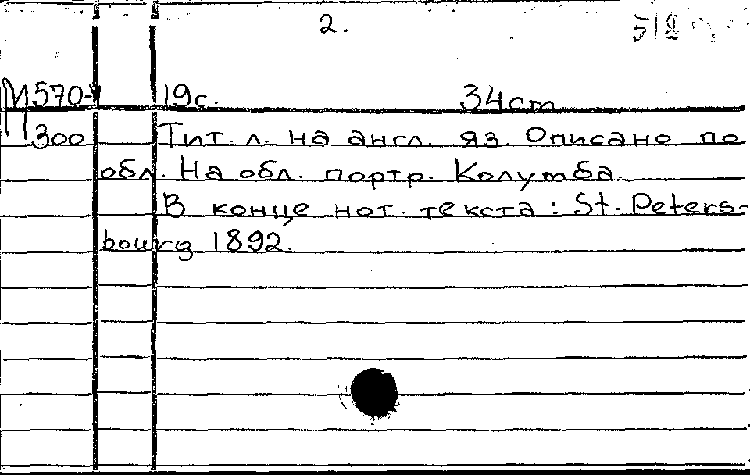 2.
М570- 19с. 34cm
300 Тит. л. на англ. яз. Описано по
обл. На обл. портр. Колумба.
В конце нот. текста: St. Peters-
bourg 1892.